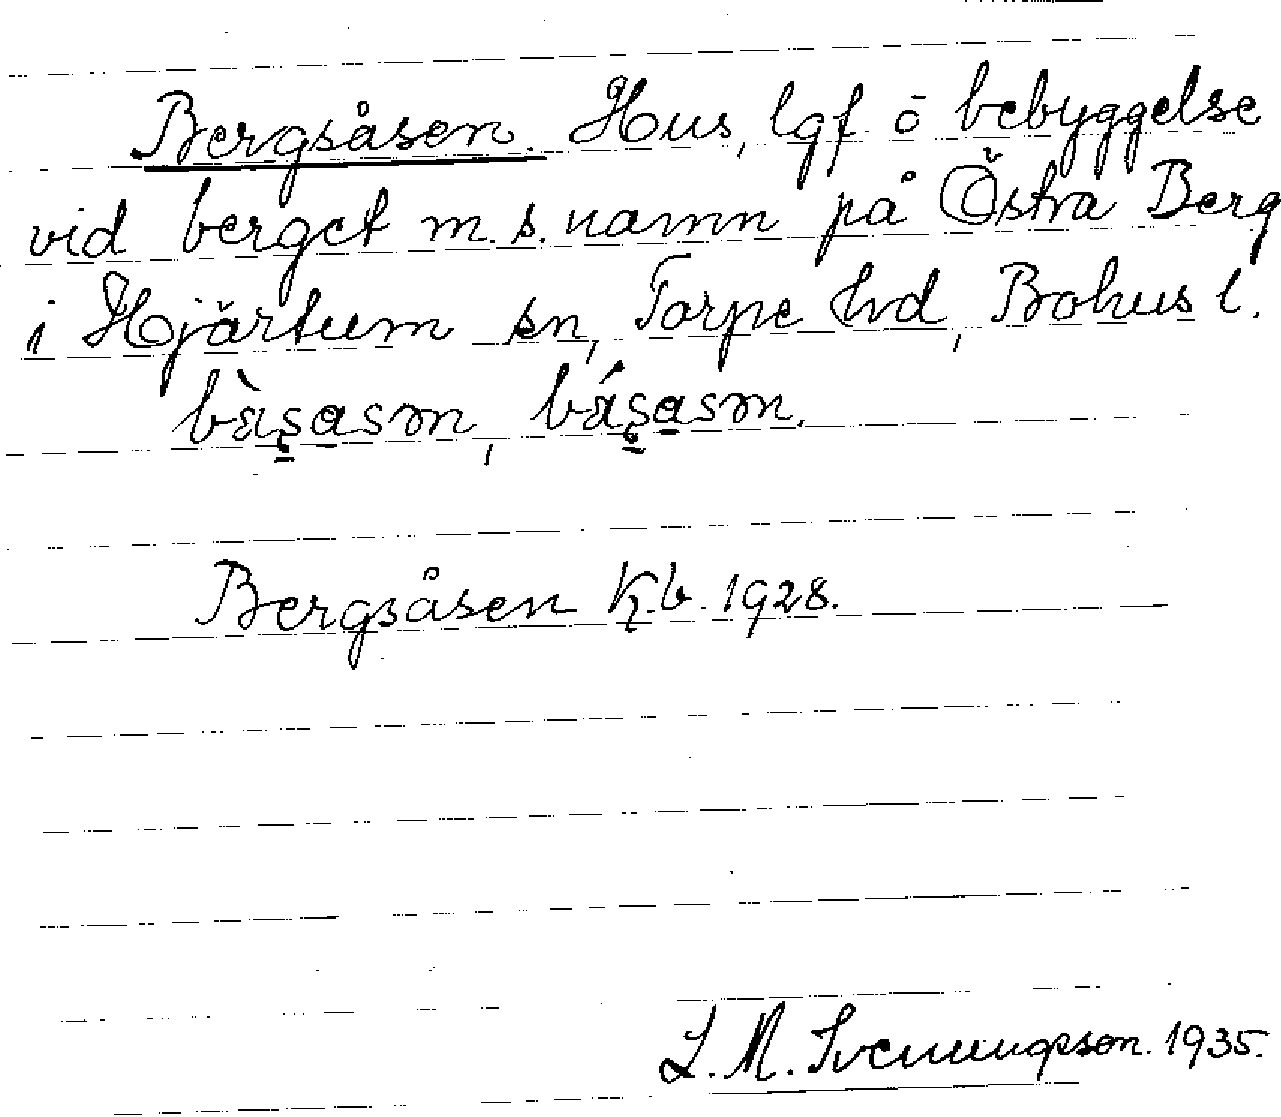 Bergsåsen. Hus, lgf o bebyggelse
vid berget m. s. namn på Östra Berg
i Hjärtum sn, Torpe hd, Bohus l.
Bergsåsen K.b. 1928.
L. M. Svenungsson. 1935.